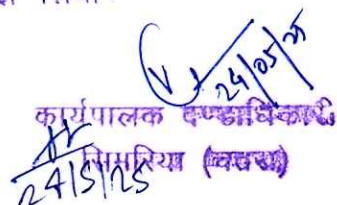 24/05/25
कार्यपालक दण्डाधिकारी
सिमरिया (चतरा)
24/5/25